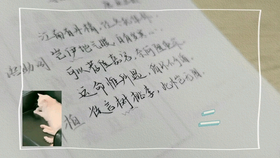 江南有丹橘，经冬犹绿林
岂伊地气暖，自有岁寒心
可以荐嘉客，奈何阻重深
运命惟所遇，循环不可寻
徒言树桃李，此木岂无阴